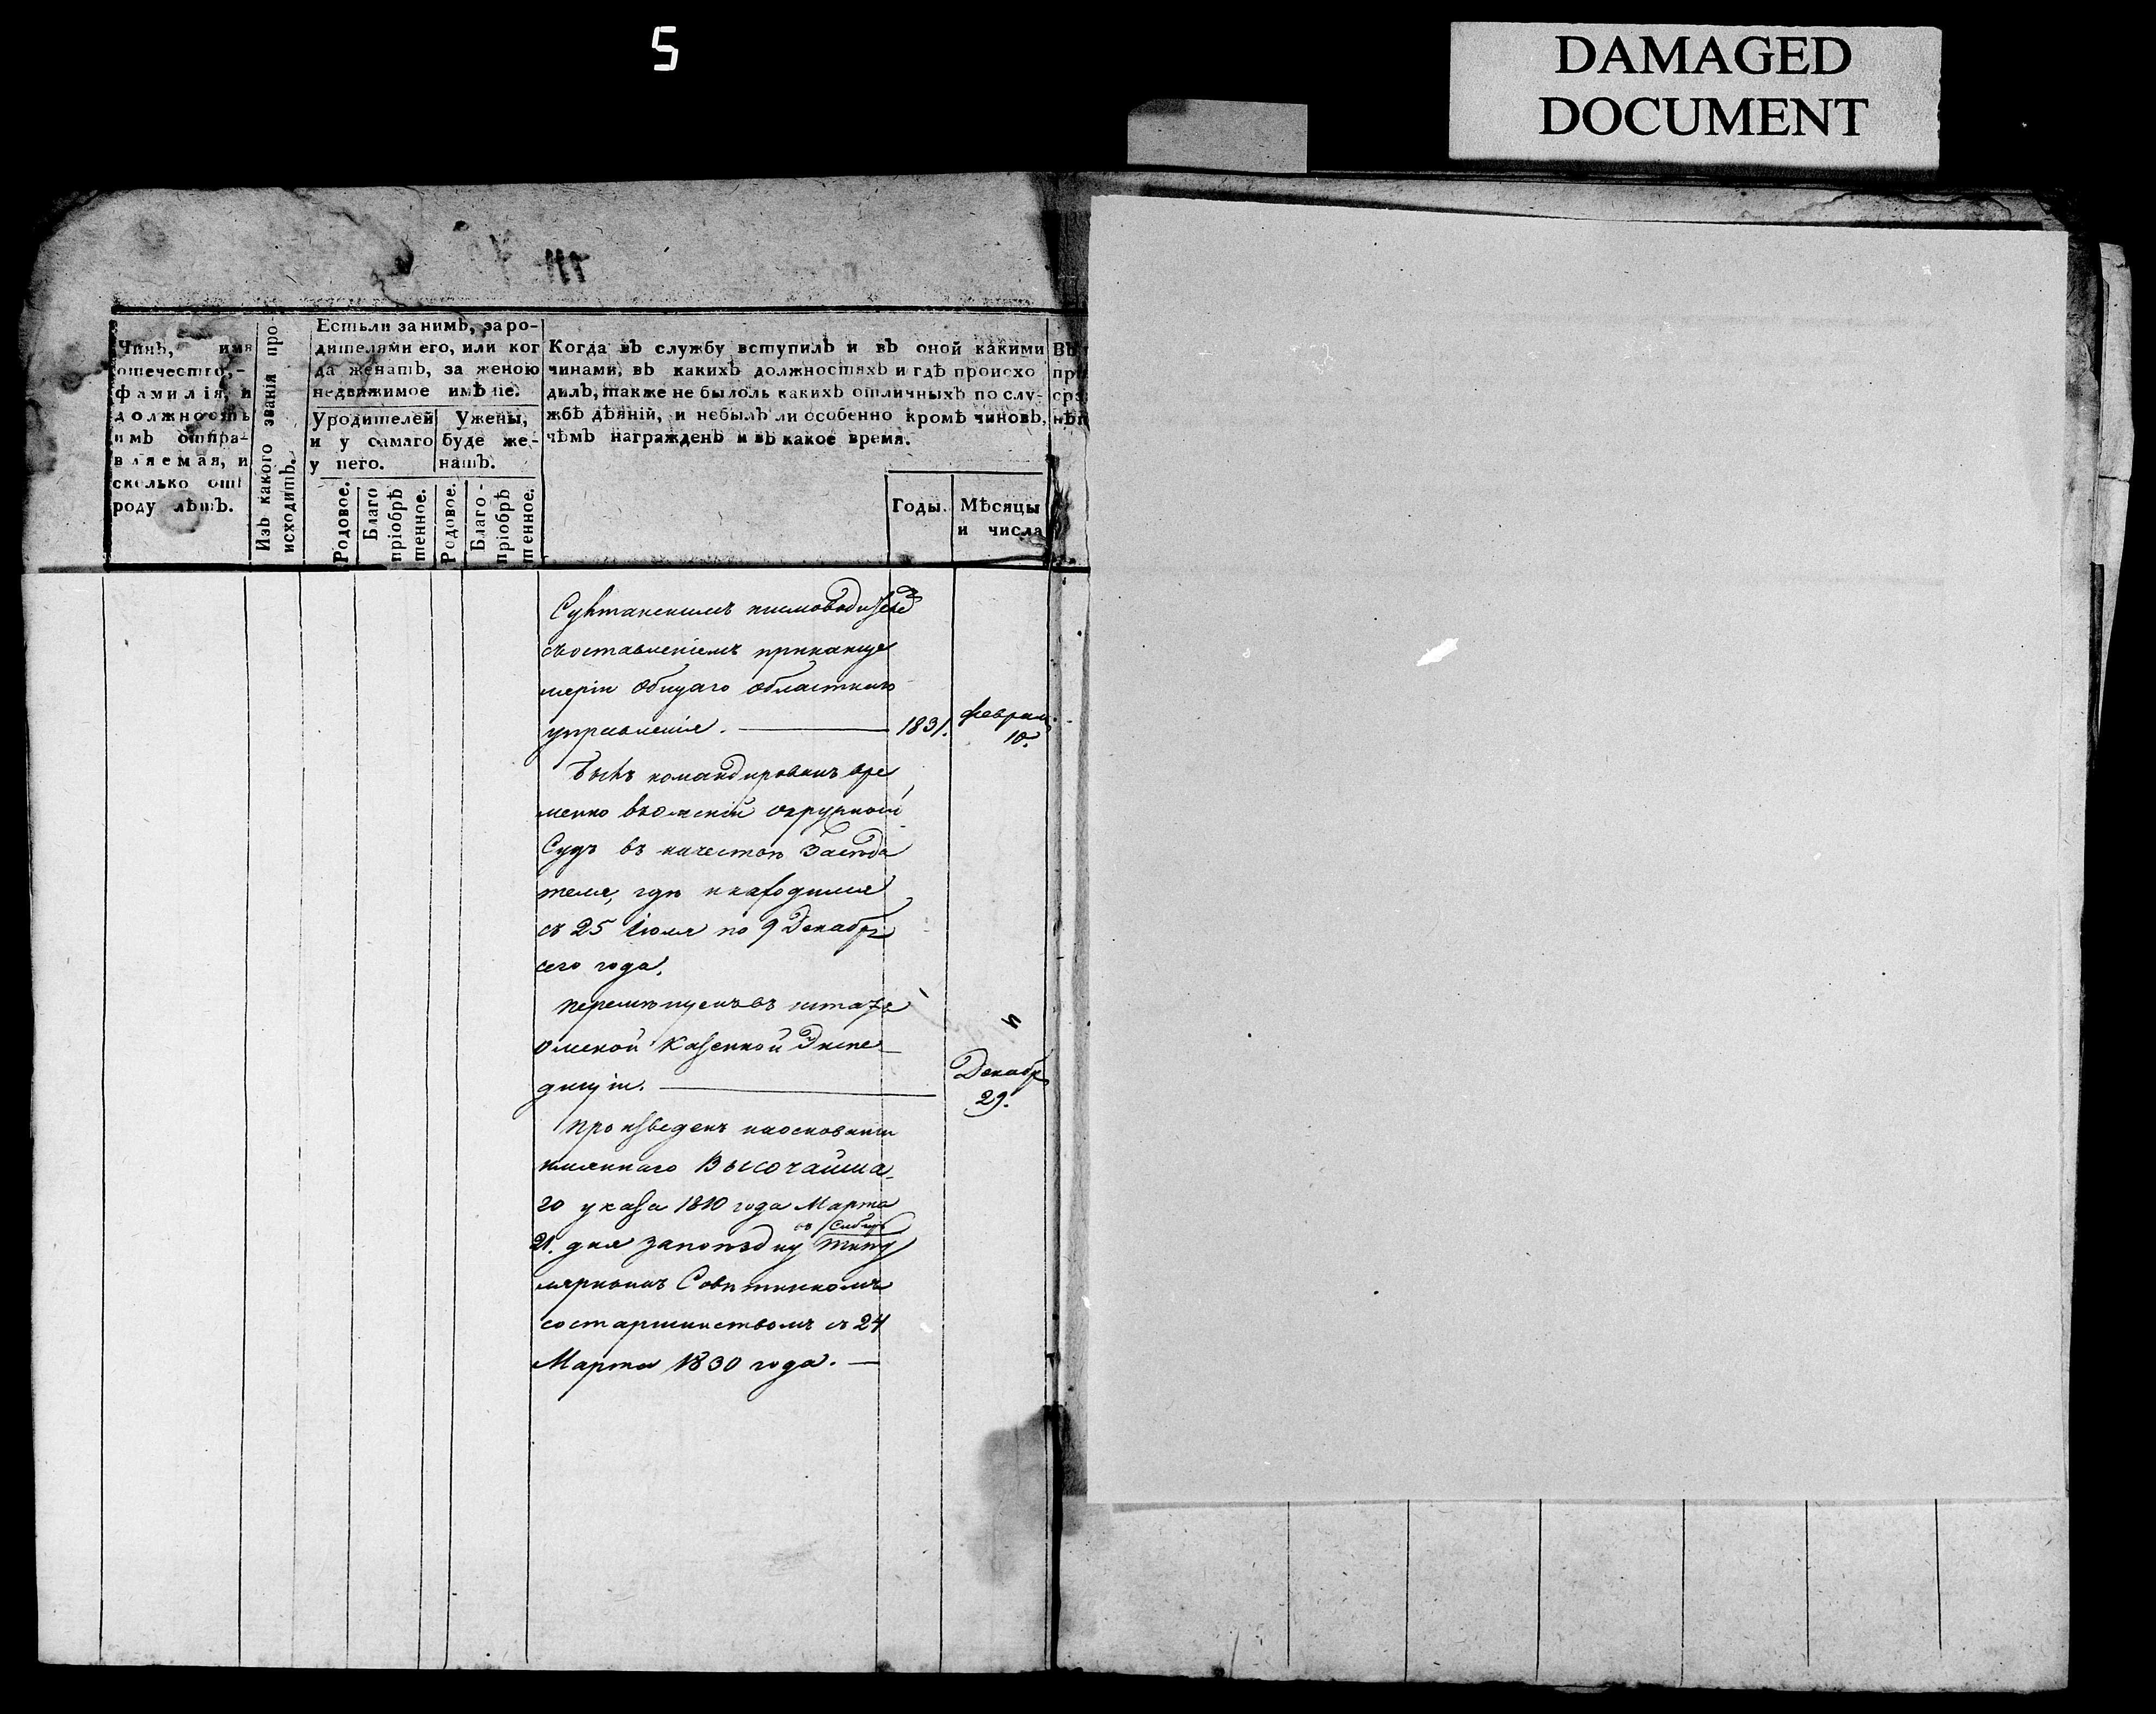 5
DAMAGED
DOCUMENT
Чинъ, имя
отечество,-
фамилія, и
должность
имъ отпра-
вляемая, и
сколько отъ
роду лѣтъ.
Изъ какого званія про-
исходитъ.
Естьли за нимъ, за ро-
дителями его, или ког
да женатъ, за женою
недвижимое имѣніе.
Уродителей
и у самаго
у него.
Ужены,
буде же-
натъ.
Родовое.
Благо
пріобрѣ
тенное.
Родовое.
Благо-
пріобрѣ
тенное.
Когда въ службу вступилъ и въ оной какими
чинами, въ какихъ должностяхъ и гдѣ происхо
дилъ, также не былоль какихъ отличныхъ по слу-
жбѣ дѣяній, и небылъ ли особенно кромѣ чиновъ,
чѣмъ награжденъ и въ какое время.
Годы.
Мѣсяцы
и числа
Султанскимъ письмоводителе
съоставленіемъ приканце
леріи Общаго областнаго
управленія. 1831. Февраля 10.
Былъ командированъ вре
менно въомскій окружной
Судъ въ качествѣ Засѣда
теля, гдѣ и находился
съ 25 Іюля по 9 Декабря
сего года.
перемѣщенъ въ штатъ
Омской Казенной Экспе
диціи. Декабр 29.
произведенъ наосновании
имяннаго Высочайша
го указа 1810 года Марта
21. дня запоѣздку въ Сибирь титу
лярнымъ Совѣтникомъ
состаршинствомъ съ 24
Марта 1830 года.